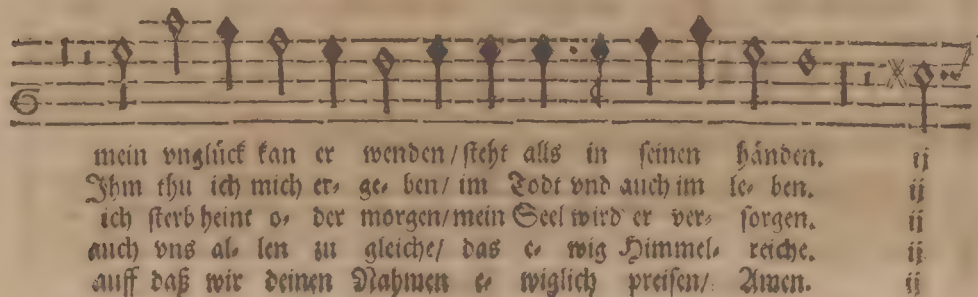 mein vnglück kan er wenden/ steht alls in seinen händen. ij
Ihm thu ich mich er- ge- ben/ im Todt vnd auch im le- ben. ij
ich sterb heint o- der morgen/ mein Seel wird er ver- sorgen. ij
auch vns al- len zu gleiche/ das e- wig Himmel- reiche. ij
auff daß wir deinen Nahmen e- wiglich preisen/ Amen. ij